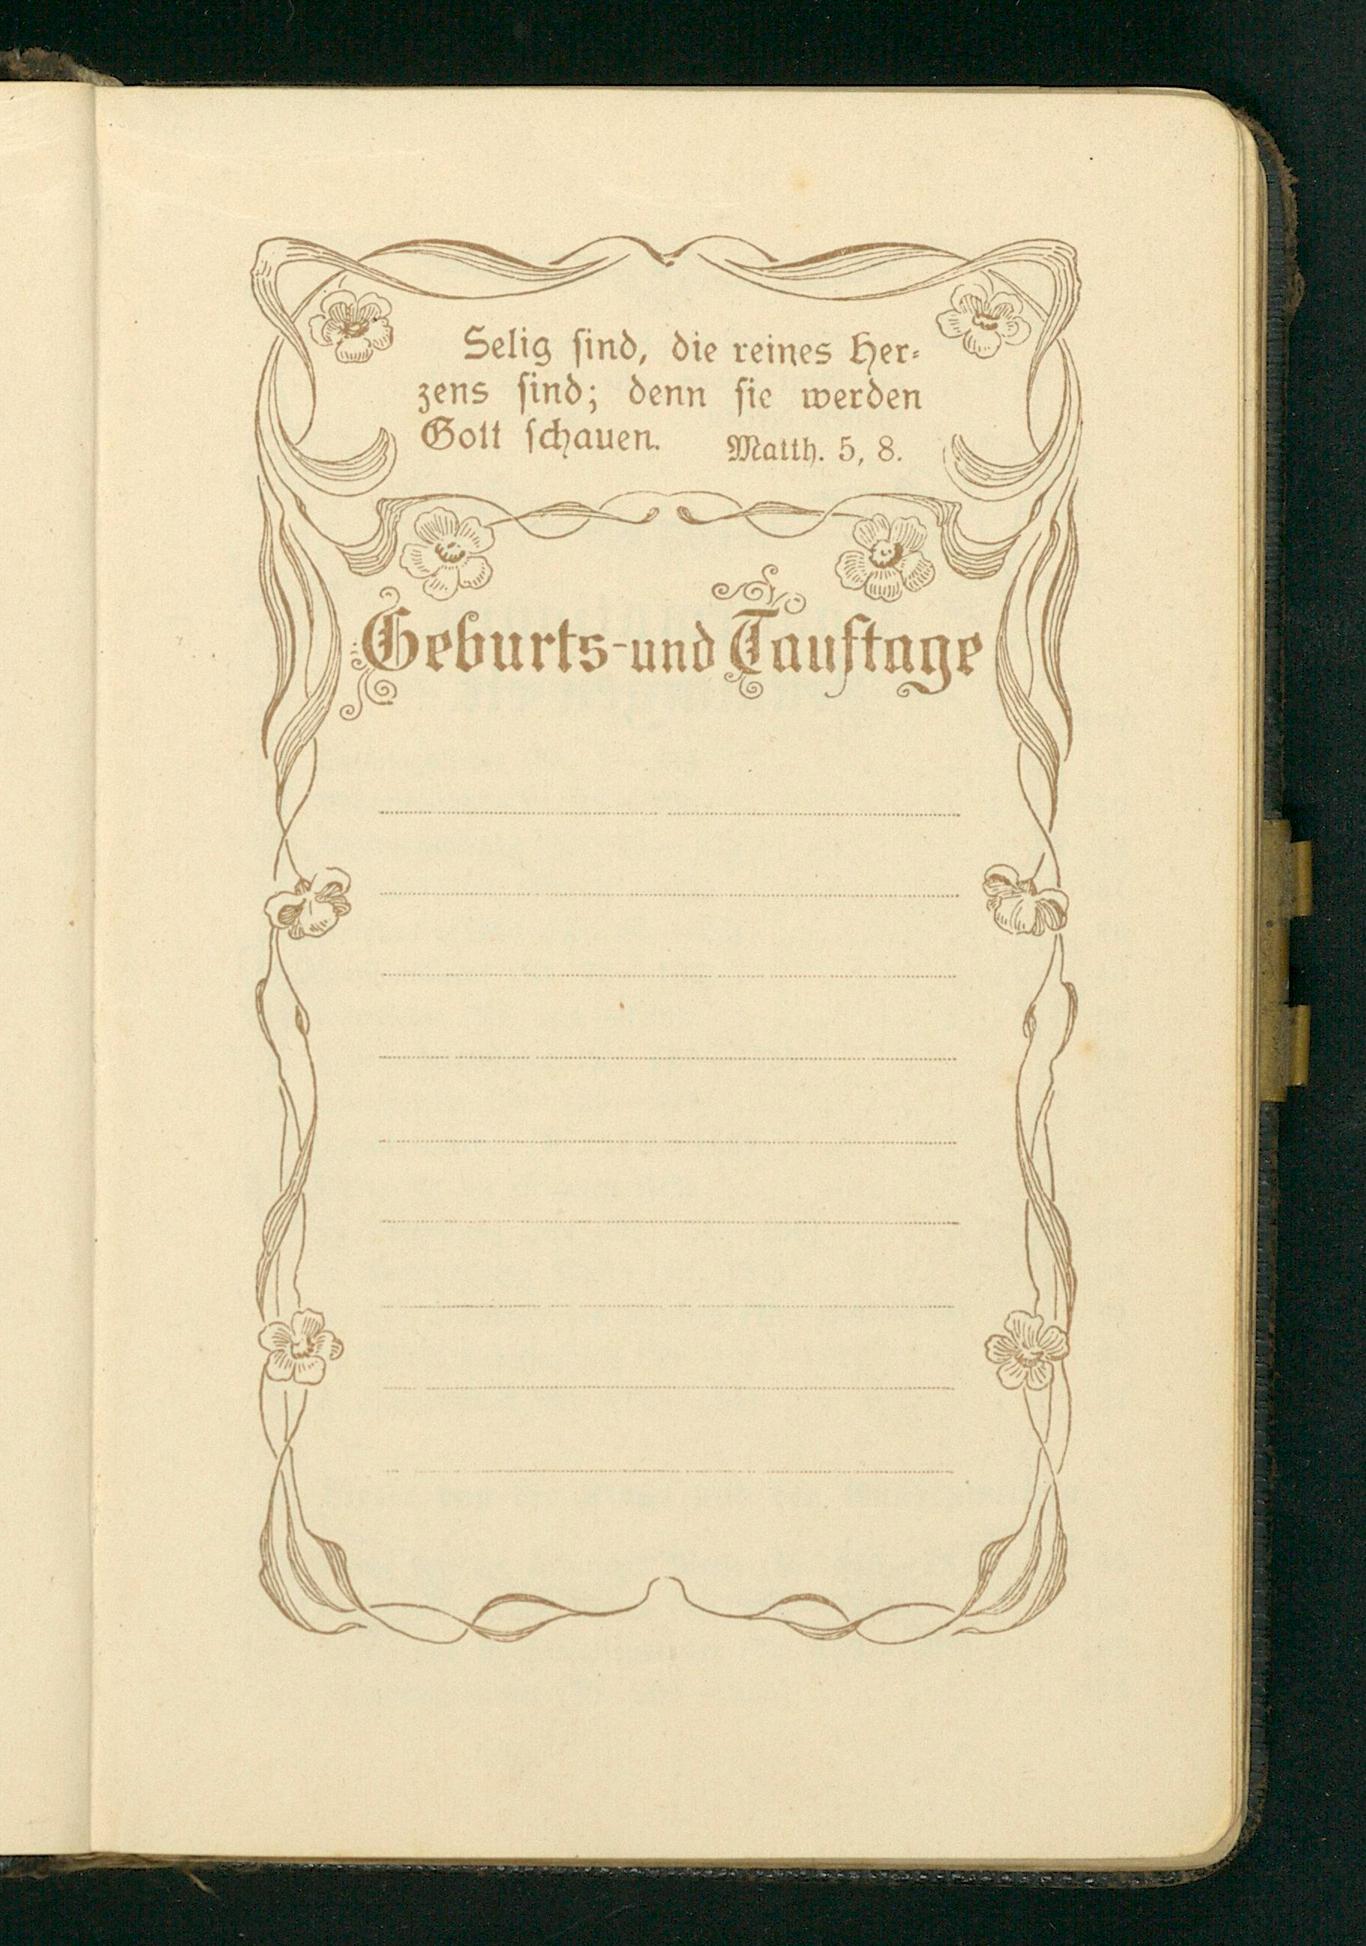 Selig sind, die reines Her-
zens sind; denn sie werden
Gott schauen. Matth. 5, 8.
Geburts- und Tauftage